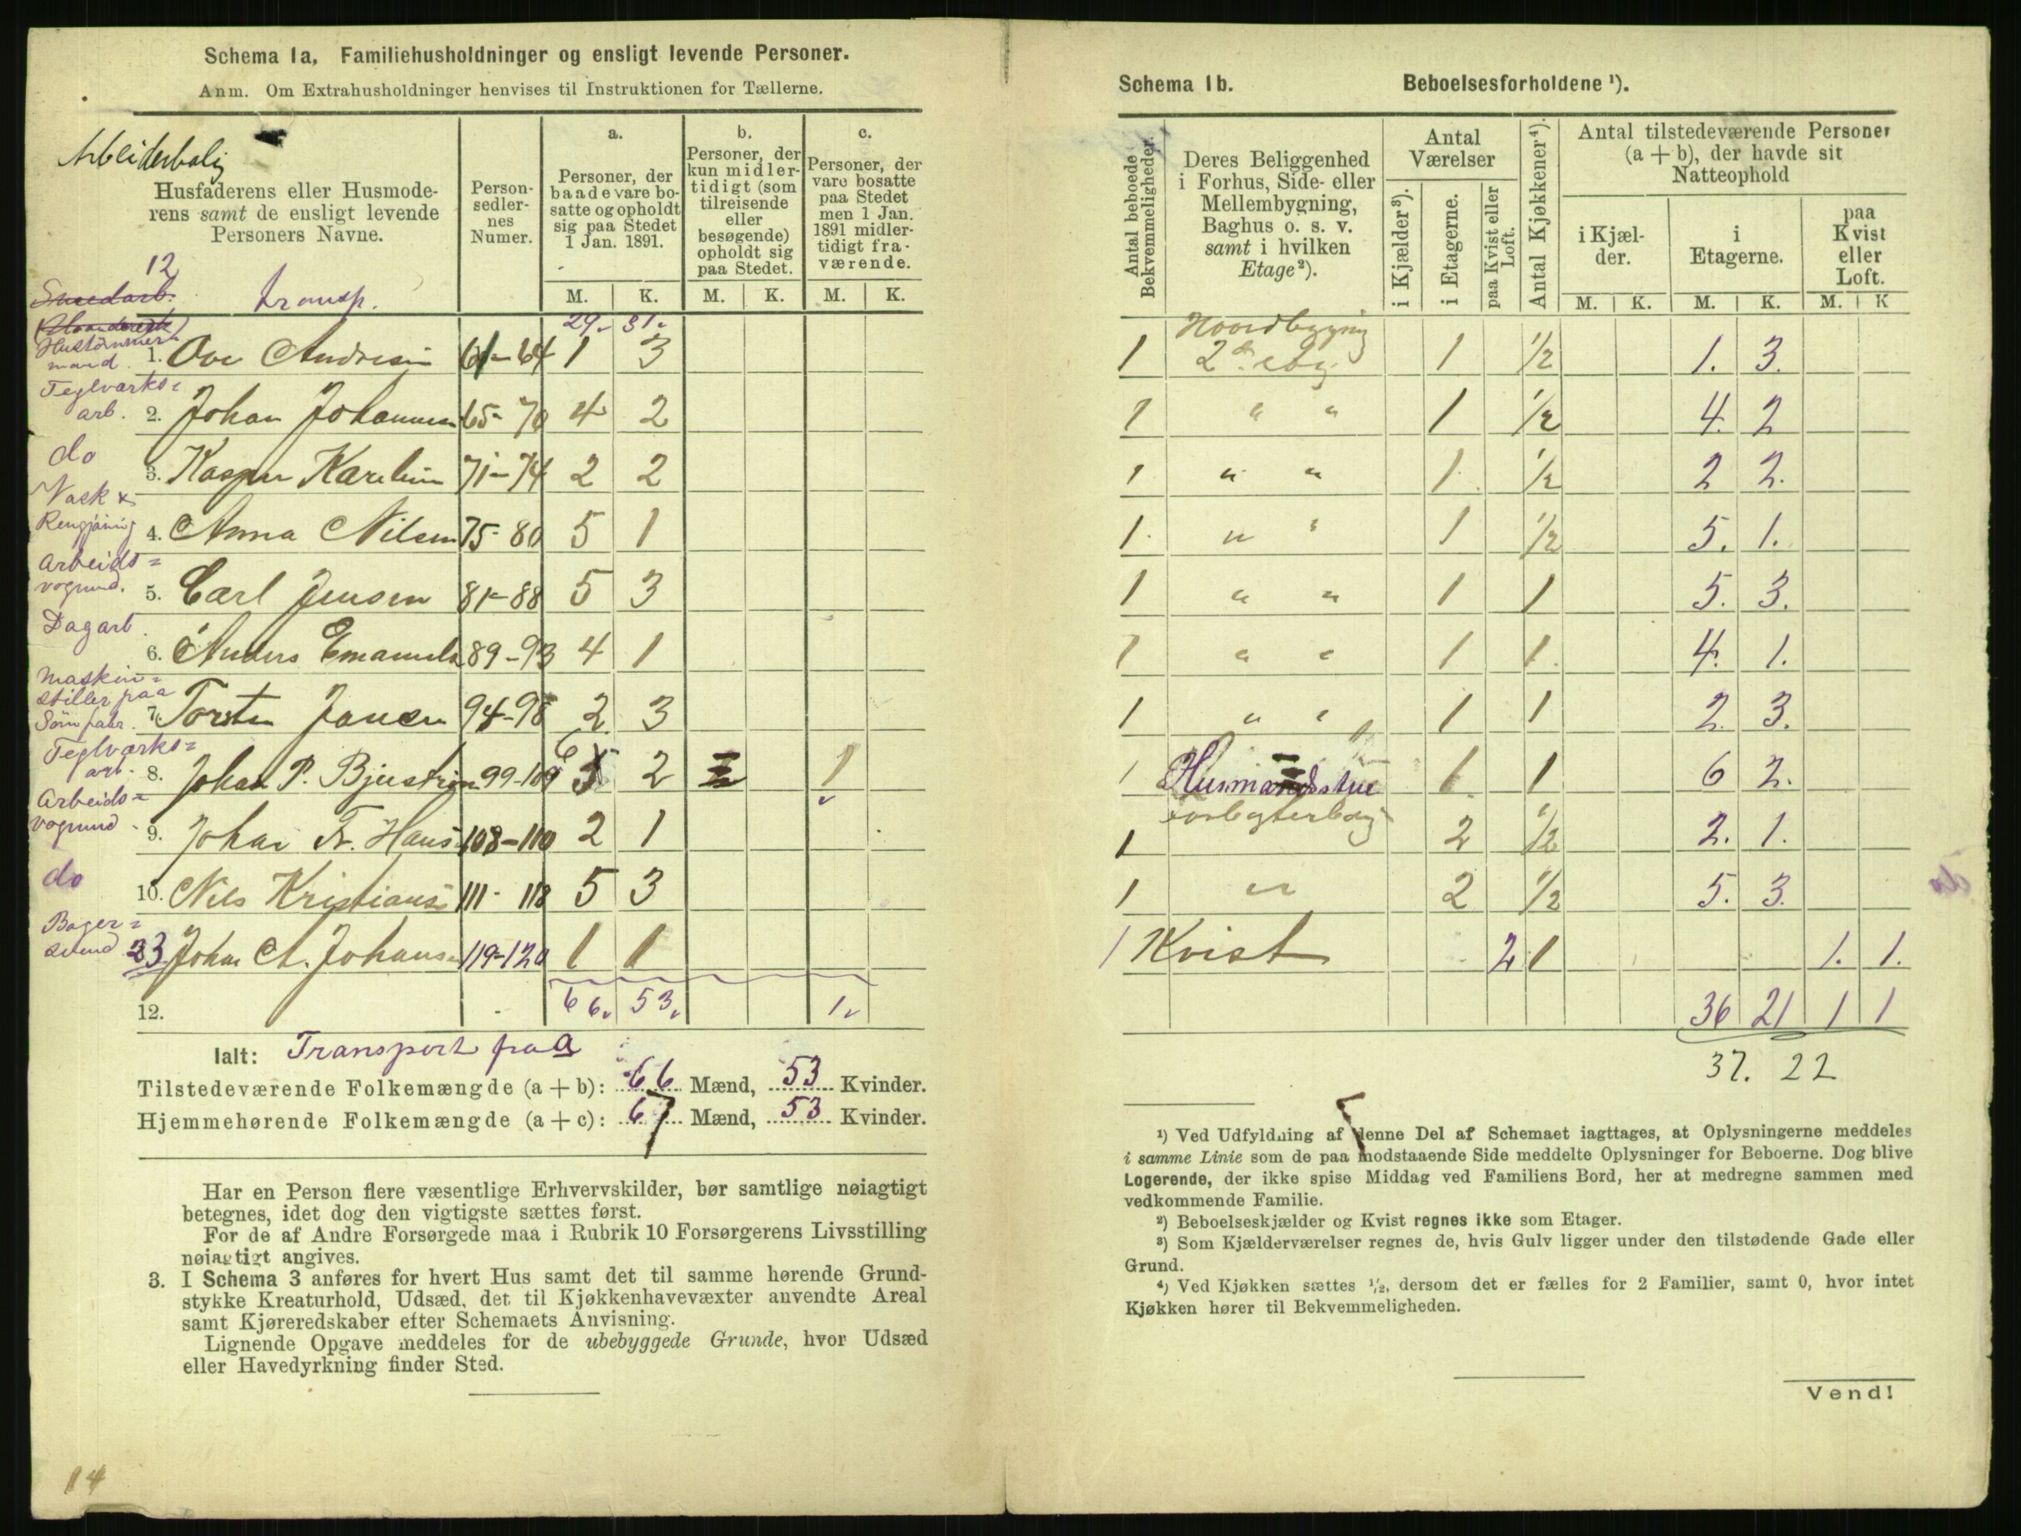 Schema 1a. Familiehusholdninger og ensligt levende Personer.
Anm. Om Extrahusholdninger henvises til Instruktionen for Tællerne.
Arbeiderbolig
Husfaderens eller Husmode-
rens samt de ensligt levende
Personers Navne.
Person-
sedler-
nes
Numer.
a.
Personer, der
baade vare bo-
satte og opholdt
sig paa Stedet
1 Jan. 1891.
b.
Personer, der
kun midler-
tidigt (som
tilreisende
eller
besøgende)
opholdt sig
paa Stedet.
c.
Personer, der
vare bosatte
paa Stedet
men 1 Jan.
1891 midler-
tidigt fra-
værende.
M. K. M. K. M. K.
12
Smedarb. transp.
29. 31.
Hustømmer-
mand. 1. Ove Andresen 61-64 1 3
Teglværks=
arb. 2. Johan Johannesen 65-70 4 2
do 3. Kasper Karelius 71-74 2 2
Vask &
Rengjöring 4. Anna Nilsen 75-80 5 1
Arbeids=
vognmd. 5. Carl Jensen 81-88 5 3
Dagarb. 6. Anders Emanuels 89-93 4 1
Maskin=
stiller paa
Sömfabr. 7. Torsten Jansen 94-98 2 3
Teglværks=
arb. 8. Johan P. 99-10 6 2 1
Arbeids=
vognmd. 9. Johan Fr. Hans 108-110 2 1
do 10. Nils Kristians 111-118 5 3
Bager=
svend 23 Johan A. Johans 119-120 1 1
12. 66. 53. 1.
Ialt: Transport paa a
Tilstedeværende Folkemængde (a + b): 66 Mænd, 53 Kvinder.
Hjemmehørende Folkemængde (a + c): 67 Mænd, 53 Kvinder.
Har en Person flere væsentlige Erhvervskilder, bør samtlige nøiagtigt
betegnes, idet dog den vigtigste sættes først.
For de af Andre Forsørgede maa i Rubrik 10 Forsørgerens Livsstilling
nøiagtigt angives.
3. I Schema 3 anføres for hvert Hus samt det til samme hørende Grund-
stykke Kreaturhold, Udsæd, det til Kjøkkenhavevæxter anvendte Areal
samt Kjøreredskaber efter Schemaets Anvisning.
Lignende Opgave meddeles for de ubebyggede Grunde, hvor Udsæd
eller Havedyrkning finder Sted.
14
Schema 1b. Beboelsesforholdene ¹).
Antal beboede
Bekvemmeligheder.
Deres Beliggenhed
i Forhus, Side- eller
Mellembygning,
Baghus o. s. v.
samt i hvilken
Etage²).
Antal
Værelser
i Kjælder³).
i Etagerne.
paa Kvist eller
Loft.
Antal Kjøkkener⁴).
Antal tilstedeværende Personer
(a + b), der havde sit
Natteophold
i Kjæl-
der.
i
Etagerne.
paa
Kvist
eller
Loft.
M. K. M. K. M. K
Hovedbygning
1 2den etag. 1 1/2 1. 3.
1 " " 1 1/2 4. 2
1 " " 1 1/2 2 2.
1 " " 1 1/2 5. 1.
1 " " 1 1 5. 3.
1 " " 1 1 4. 1.
1 " " 1 1 2. 3.
1 Husmandsstue 1 1 6 2.
1 2 1/2 2. 1.
1 " 2 1/2 5. 3.
1 Kvist 2 1 1. 1.
36 21 1 1
37. 22
¹) Ved Udfyldning af denne Del af Schemaet iagttages, at Oplysningerne meddeles
i samme Linie som de paa modstaaende Side meddelte Oplysninger for Beboerne. Dog blive
Logerende, der ikke spise Middag ved Familiens Bord, her at medregne sammen med
vedkommende Familie.
²) Beboelseskjælder og Kvist regnes ikke som Etager.
³) Som Kjælderværelser regnes de, hvis Gulv ligger under den tilstødende Gade eller
Grund.
⁴) Ved Kjøkken sættes 1/2, dersom det er fælles for 2 Familier, samt 0, hvor intet
Kjøkken hører til Bekvemmeligheden.
Vend!